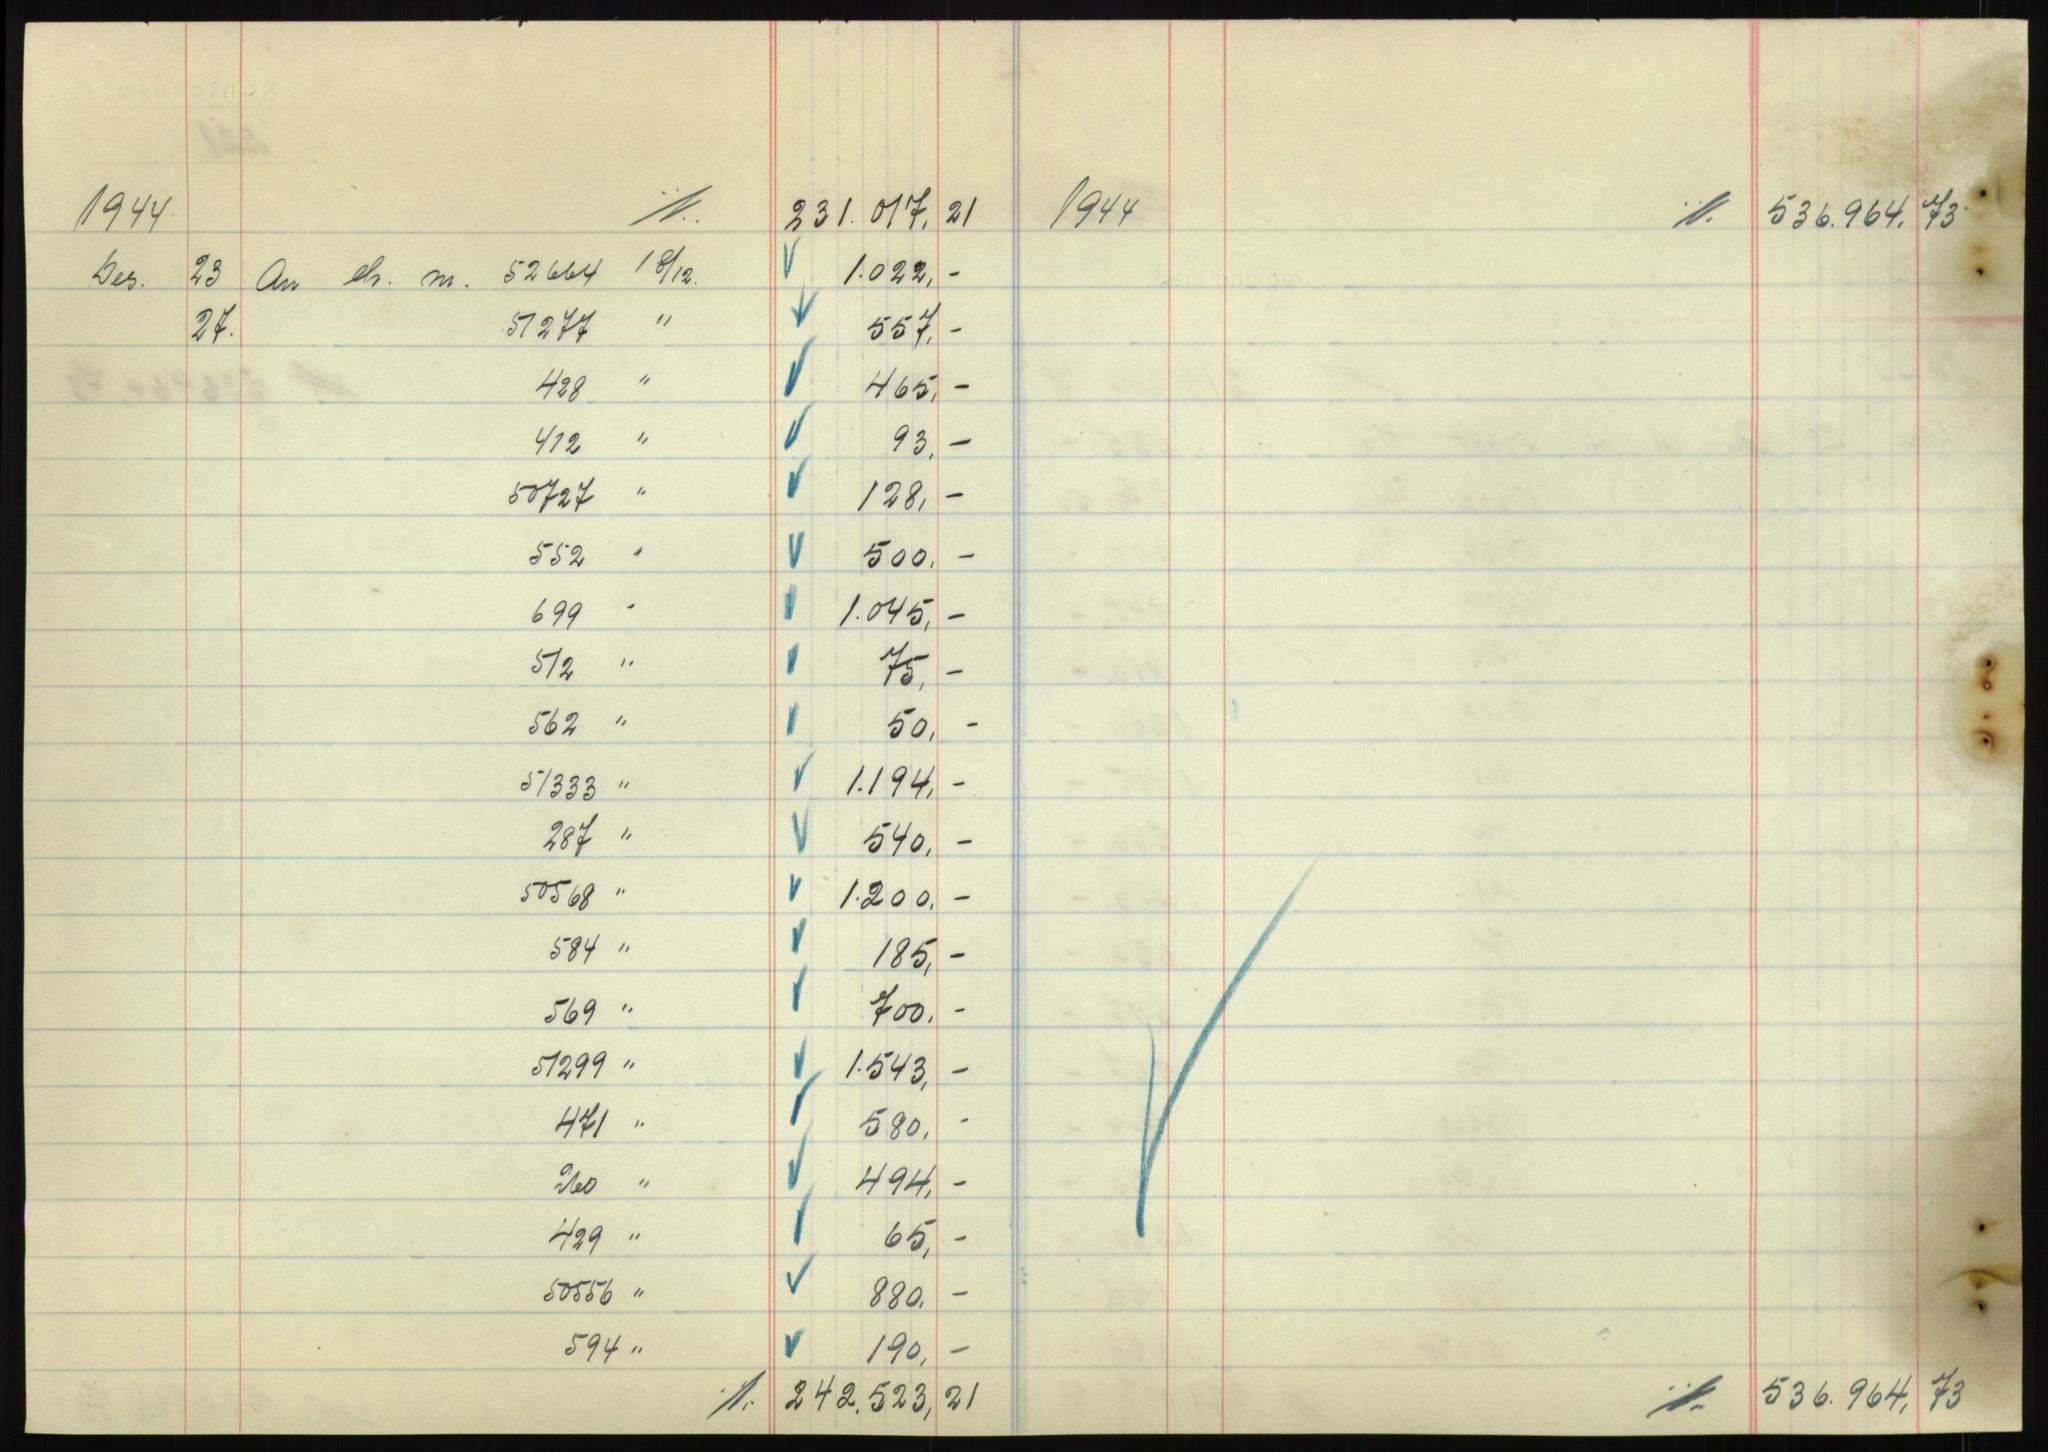 1944 ./. 231.017,21 1944 ./. 536.964,73
Des. 23 An ch. nr. 52664 18/12. 1.022,-
27. 51277 " 557,-
428 " 465,-
412 " 93,-
50727 " 128,-
552 " 500,-
699 " 1.045,-
512 " 75,-
562 " 50,-
51333 " 1.194,-
287 " 540,-
50568 " 1.200,-
584 " 185,-
569 " 700,-
51299 " 1.543,-
471 " 580,-
260 " 494,-
429 " 65,-
50556 " 880,-
594 " 190,-
./. 242.523,21 ./. 536.964,73